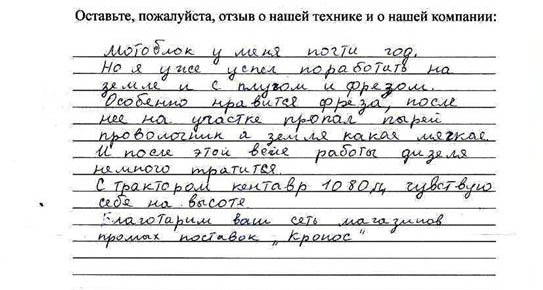 Оставьте, пожалуйста, отзыв о нашей технике и о нашей компании:
Мотоблок у меня почти год.
Но я уже успел поработить на
земле и с плугом и фрезом.
Особенно нравится фреза, после
нее на участке пропал пырей
проволочник а земля какая мягкае.
И после этой всей работы дизеля
немного тратится.
С трактором кентавр 1080д чувствую
себе на высоте
Благотарим ваш сеть магазинов
промых поставок „Кронос"